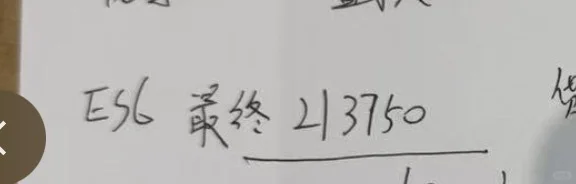 ES6 最终 213750